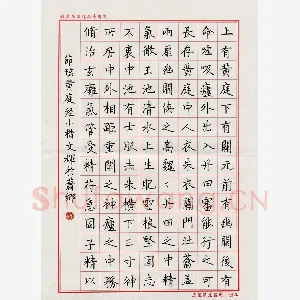 上有黃庭下有關元前有幽闕後有
命噓吸廬外出入丹田審能行之可
長存黃庭中人衣朱衣關門壯籥蓋
兩扉幽闕俠之高巍巍丹田之中精
氣微玉池清水上生肥靈根堅固志
不衰中池有士服赤朱橫下三寸神
所居中外相距重閉之神廬之中務
脩治玄膺氣管受精符急固子精以
節臨黃庭經小楷文輝於